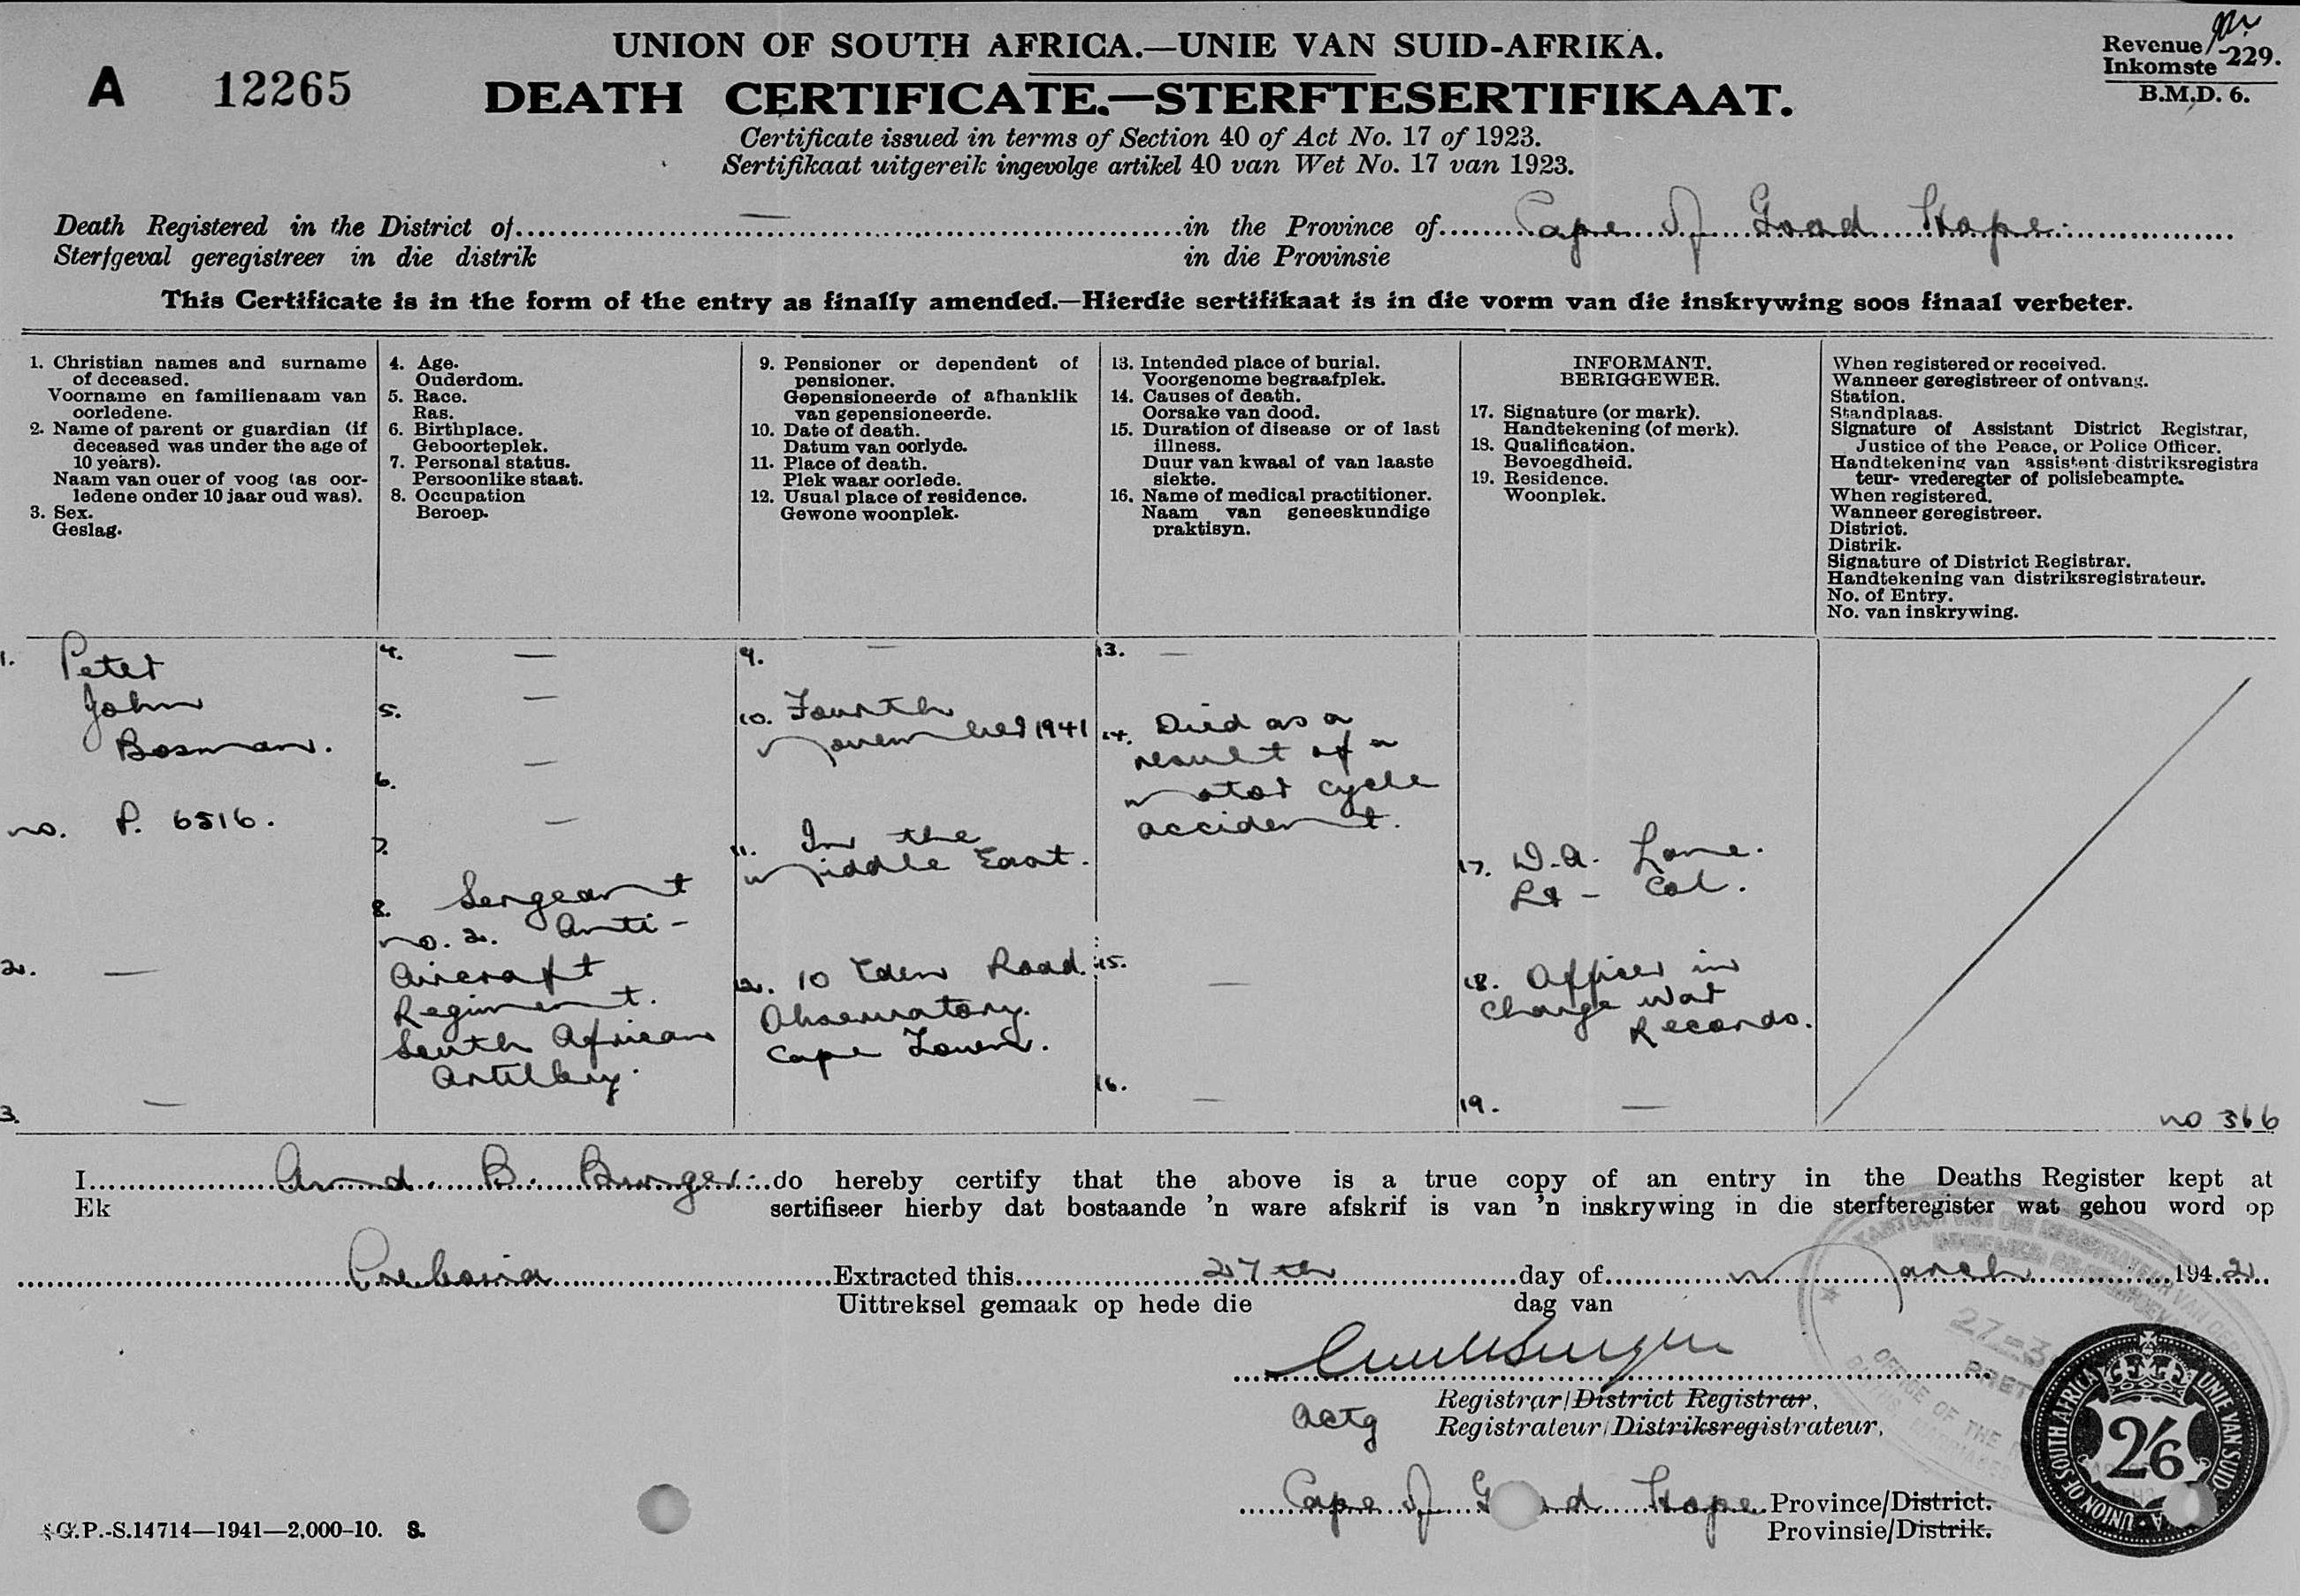 UNION OF SOUTH AFRICA.—UNIE VAN SUID-AFRIKA.
Revenue 229.
Inkomste
B.M.D. 6.
A 12265
DEATH CERTIFICATE.—STERFTESERTIFIKAAT.
Certificate issued in terms of Section 40 of Act No. 17 of 1923.
Sertifikaat uitgereik ingevolge artikel 40 van Wet No. 17 van 1923.
Death Registered in the District of — in the Province of Cape of Good Hope.
Sterfgeval geregistreer in die distrik in die Provinsie
This Certificate is in the form of the entry as finally amended.—Hierdie sertifikaat is in die vorm van die inskrywing soos finaal verbeter.
1. Christian names and surname
of deceased.
Voorname en familienaam van
oorledene.
2. Name of parent or guardian (if
deceased was under the age of
10 years).
Naam van ouer of voog (as oor-
ledene onder 10 jaar oud was).
3. Sex.
Geslag.
4. Age.
Ouderdom.
5. Race.
Ras.
6. Birthplace.
Geboorteplek.
7. Personal status.
Persoonlike staat.
8. Occupation
Beroep.
9. Pensioner or dependent of
pensioner.
Gepensioneerde of afhanklik
van gepensioneerde.
10. Date of death.
Datum van oorlyde.
11. Place of death.
Plek waar oorlede.
12. Usual place of residence.
Gewone woonplek.
13. Intended place of burial.
Voorgenome begraafplek.
14. Causes of death.
Oorsake van dood.
15. Duration of disease or of last
illness.
Duur van kwaal of van laaste
siekte.
16. Name of medical practitioner.
Naam van geneeskundige
praktisyn.
INFORMANT.
BERIGGEWER.
17. Signature (or mark).
Handtekening (of merk).
18. Qualification.
Bevoegdheid.
19. Residence.
Woonplek.
When registered or received.
Wanneer geregistreer of ontvang.
Station.
Standplaas.
Signature of Assistant District Registrar,
Justice of the Peace, or Police Officer.
Handtekening van assistent-distriksregistra
teur- vrederegter of polisiebeampte.
When registered.
Wanneer geregistreer.
District.
Distrik.
Signature of District Registrar.
Handtekening van distriksregistrateur.
No. of Entry.
No. van inskrywing.
1. Peter
John
Bosman.
no. P. 6516.
2. —
3. —
4. —
5. —
6. —
7. —
8. Sergeant
no. 2. Anti-
Aircraft
Regiment.
South African
Artillery.
9. —
10. Fourth
November 1941
11. In the
Middle East.
12. 10 Eden Road.
Observatory.
Cape Town.
13. —
14. Died as a
result of a
motor cycle
accident.
15. —
16. —
17. D.A. Lane.
Lt-Col.
18. Officer in
Charge War
Records.
19. —
no 366
I Arnd. B. Burger. do hereby certify that the above is a true copy of an entry in the Deaths Register kept at
Ek sertifiseer hierby dat bostaande 'n ware afskrif is van 'n inskrywing in die sterfteregister wat gehou word op
Pretoria Extracted this 27th day of March 1942
Uittreksel gemaak op hede die dag van
27-3
PRET
OFFICE OF THE
Registrar/District Registrar,
Actg Registrateur/Distriksregistrateur,
Cape of Good Hope Province/District.
Provinsie/Distrik.
UNION OF SOUTH AFRICA UNIE VAN SUID
2/6
G.P.-S.14714—1941—2,000-10. S.